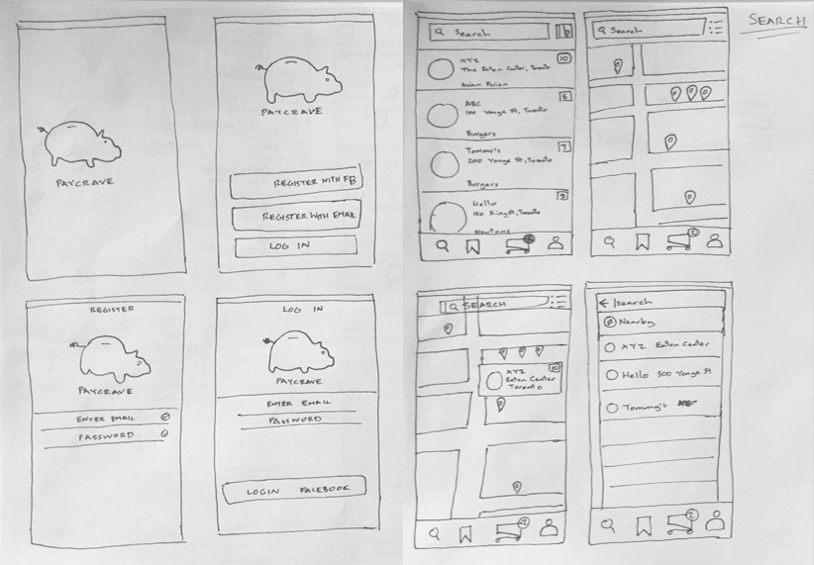 PAYCRAVE
PAYCRAVE
REGISTER WITH FB
REGISTER WITH EMAIL
LOG IN
REGISTER
PAYCRAVE
ENTER EMAIL
PASSWORD
LOG IN
PAYCRAVE
ENTER EMAIL
PASSWORD
LOGIN FACEBOOK
SEARCH
Search
XYZ
10
The Eaton Center, Toronto
Asian Fusion
ABC
5
100 Yonge St, Toronto
Burgers
Tommy's
7
200 Yonge St, Toronto
Burgers
Hello
150 King St, Toronto
Search
SEARCH
XYZ
Eaton Center
Toronto
2
Search
Nearby
XYZ Eaton Center
Hello 500 Yonge St
Tommy's
2